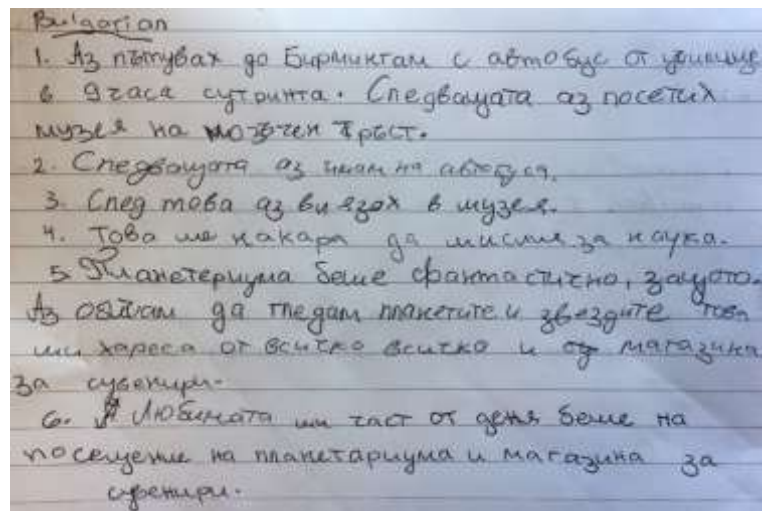 Bulgarian
1. Аз пътувах до Бирмингам с автобус от училище
в 9 часа сутринта. Следващата аз посетих
музея на тръст.
2. Следващата аз на автобуса.
3. След това аз влязох в музея.
4. Това ме накара да мисля за наука.
5. Планетериума беше фантастично, защото.
Аз обичам да гледам планетите и звездите това
ми хареса от всичко всичко и магазина
за сувенири.
6. Любимата ми част от деня беше на
посещение на планетариума и магазина за
сувенири.